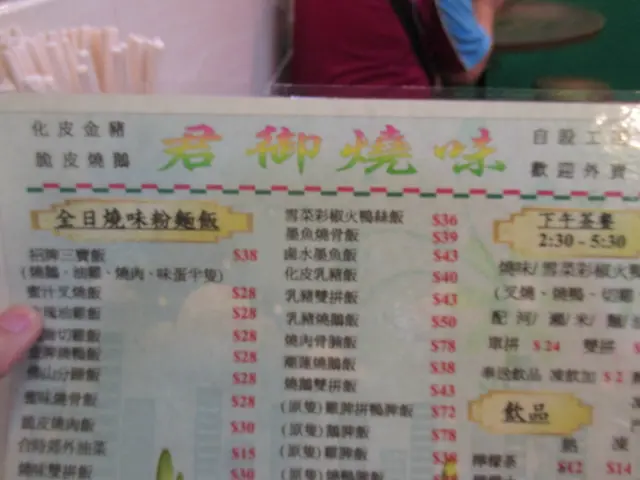 化皮金豬
脆皮燒鵝
君御燒味
自設工
歡迎外賣
全日燒味粉麵飯
招牌三寶飯 $38
(燒鵝、油雞、燒肉、味蛋半隻)
蜜汁叉燒飯 $28
油雞飯 $28
切雞飯 $28
燒鴨飯 $28
$28
燒骨飯 $28
脆皮燒肉飯 $30
合時郊外油菜 $15
燒味雙拼飯 $30
雪菜彩椒火鴨絲飯 $36
墨魚燒骨飯 $39
鹵水墨魚飯 $43
化皮乳豬飯 $40
乳豬雙拼飯 $43
乳豬燒鵝飯 $50
燒肉骨腩飯 $78
潮蓮燒鵝飯 $38
燒鵝雙拼飯 $43
(原隻)雞髀拼鴨髀飯 $72
(原隻)鵝髀飯 $78
(原隻)雞髀飯 $38
(原隻)燒鴨髀飯
下午茶餐
2:30 - 5:30
燒味/雪菜彩椒火
(叉燒、燒鴨、切雞
配河/瀨/米/麵/
單拼 $24 雙拼 $
奉送飲品 凍飲加 $2
飲品
熱 凍
檸檬茶 $12 $14